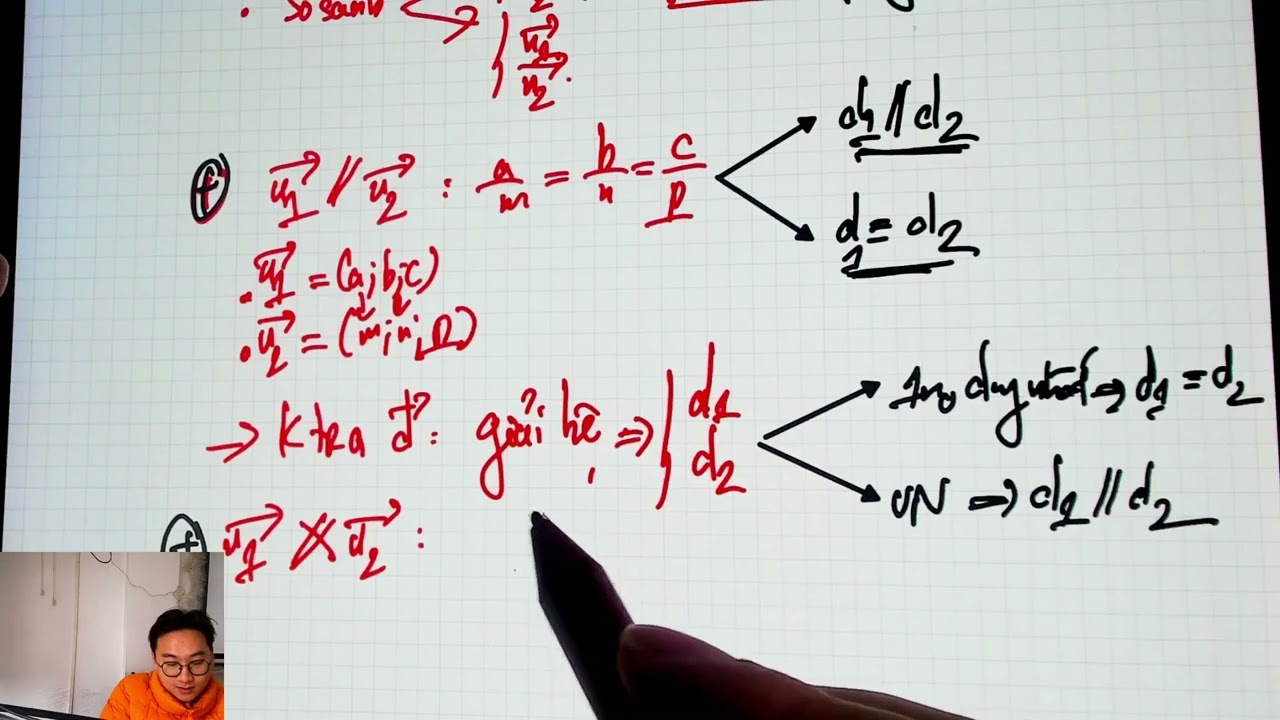 . So sánh
u₁
u₂.
⊕ u₁ // u₂ : a/m = b/n = c/p
d₁ // d₂
d₁ ≡ d₂
. u₁ = (a; b; c)
. u₂ = (m; n; p)
→ Ktra đ: giải hệ ⇒ { d₁ d₂
⇒ d₁ ≡ d₂
VN ⇒ d₁ // d₂
⊕ u₁ ∦ d₂ :